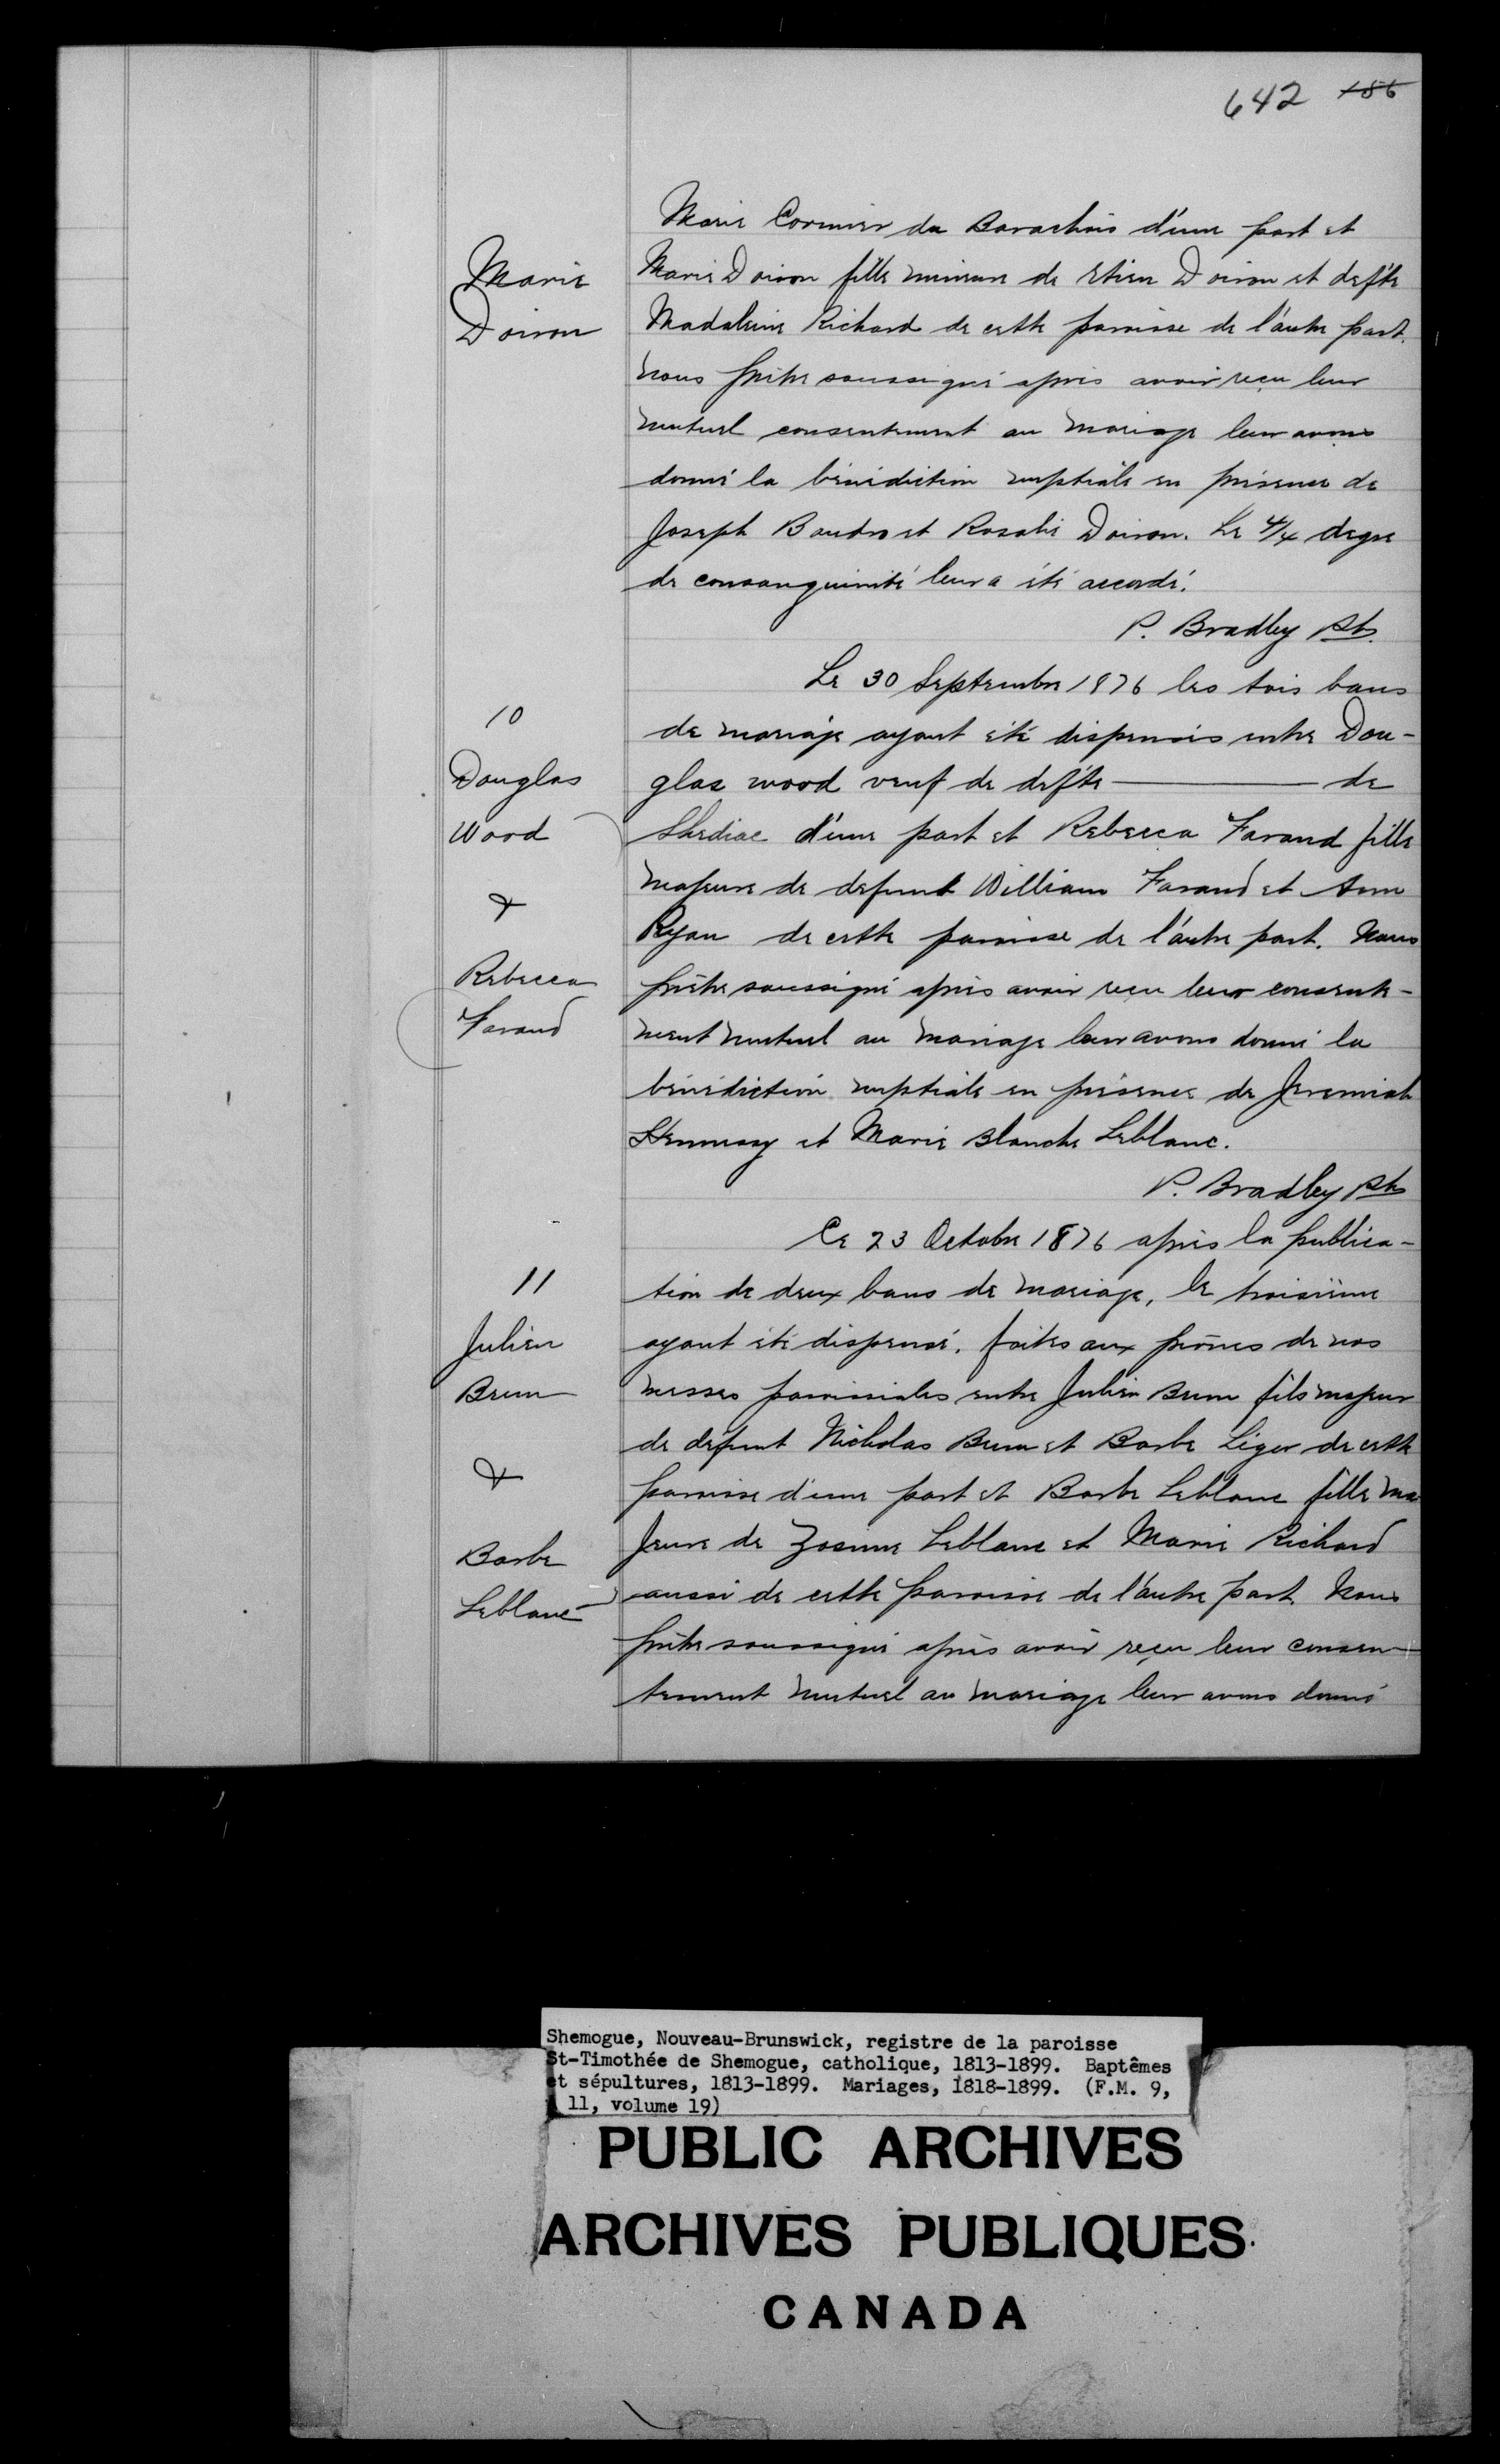 642 186
Marie Cormier du Barachois d'une part et
Marie
Doiron
Marie Doiron fille mineure de Etien Doiron et defte
Madeleine Richard de cette paroisse de l'autre part.
Nous prêtre soussigné après avoir reçu leur
mutuel consentement au mariage leur avons
donné la bénédiction nuptiale en présence de
Joseph Boudro et Rosalie Doiron. Le 4/4 degre
de consanguinité leur a été accordé.
P. Bradley Ptr.
Le 30 Septembre 1876 les tois bans
10
de mariage ayant été dispensés entre Dou-
Douglas
Wood
&
Rebecca
Farand
glas wood veuf de defte ——— de
Shediac d'une part et Rebecca Farand fille
majeure de defunt William Farand et Ann
Ryan de cette paroisse de l'autre part. Nous
prêtre soussigné après avoir reçu leur consente-
ment mutuel au mariage leur avons donné la
bénédiction nuptiale en présence de Jeremiah
Hennessy et Marie Blanche Leblanc.
P. Bradley Ptr
Ce 23 Octobre 1876 après la publica-
11
Julien
Brun
&
Barbe
Leblanc
tion de deux bans de mariage, le troisième
ayant été dispensé, faites aux prônes de nos
messes paroissiales entre Julien Brun fils majeur
de défunt Nicholas Brun et Barbe Léger de cette
paroisse d'une part et Barbe Leblanc fille ma
jeure de Zosime Leblanc et Marie Richard
aussi de cette paroisse de l'autre part. Nous
prêtre soussigné après avoir reçu leur consen-
tement mutuel au mariage leur avons donné
Shemogue, Nouveau-Brunswick, registre de la paroisse
St-Timothée de Shemogue, catholique, 1813-1899. Baptêmes
et sépultures, 1813-1899. Mariages, 1818-1899. (F.M. 9,
11, volume 19)
PUBLIC ARCHIVES
ARCHIVES PUBLIQUES
CANADA